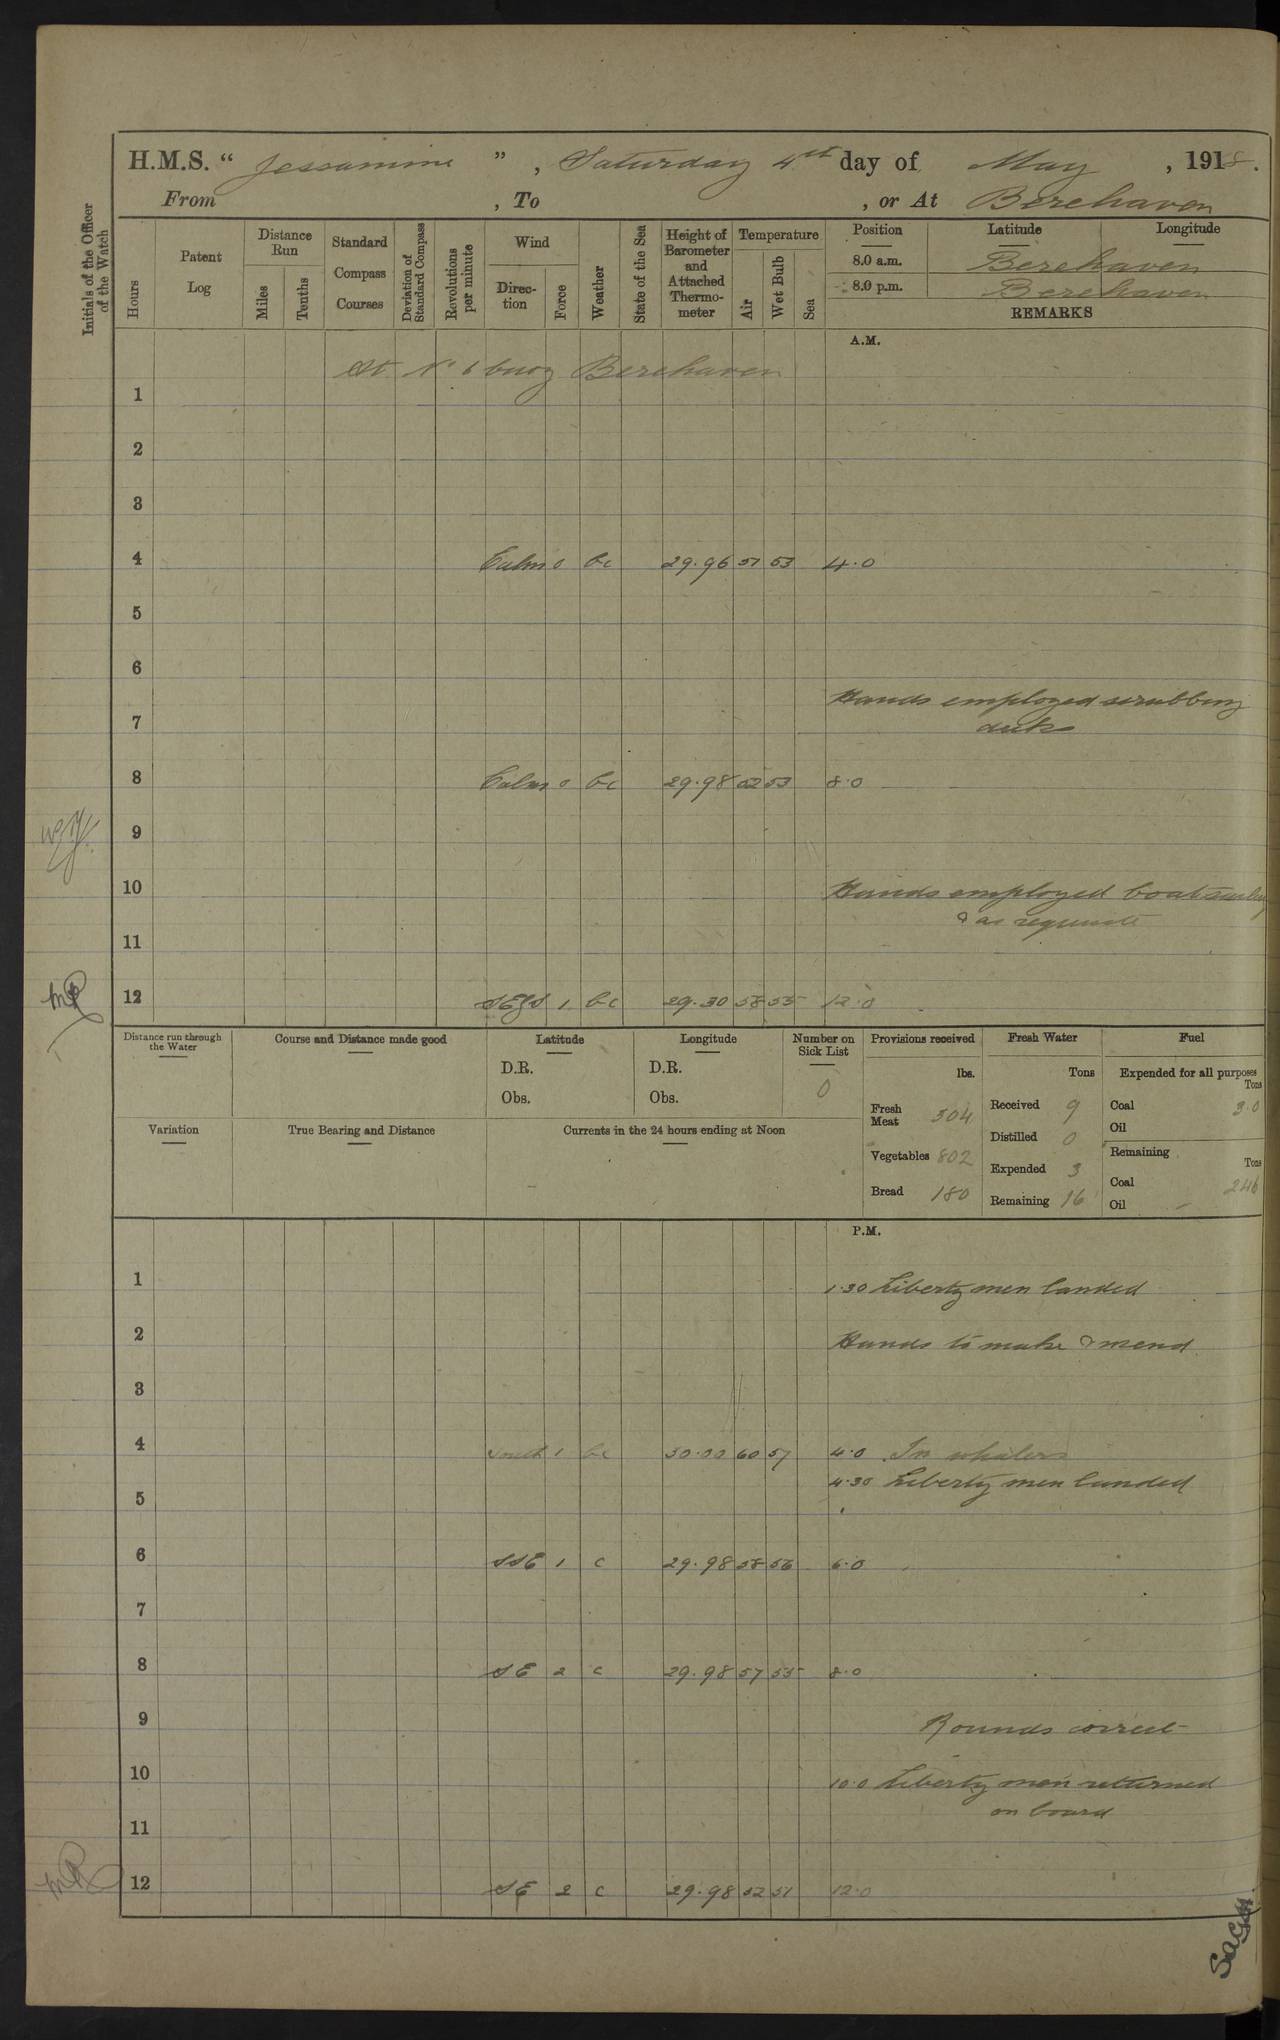 H.M.S. “ Jessamine ” , Saturday 4th day of May , 1918.
From , To , or At Berehaven
Initials of the Officer of the Watch
Hours
Patent Log
Distance Run
Miles
Tenths
Standard Compass Courses
Deviation of Standard Compass
Revolutions per minute
Wind
Direc-tion
Force
Weather
State of the Sea
Height of Barometer and Attached Thermo-meter
Temperature
Air
Wet Bulb
Sea
Position Latitude Longitude
8.0 a.m. Berehaven
8.0 p.m. Berehaven
REMARKS
A.M.
At No 6 buoy Berehaven
1
2
3
4 Calm 0 bc 29.96 51 53 4.0
5
6
Hands employed scrubbing
7 decks
8 Calm 0 bc 29.98 52 53 8.0
9
10 Hands employed boat sailing
& as requisite
11
12 SE/S 1 bc 29.30 58 55 12.0
Distance run through the Water
Course and Distance made good
Latitude
D.R.
Obs.
Longitude
D.R.
Obs.
Number on Sick List
0
Provisions received
lbs.
Fresh Meat 304
Vegetables 802
Bread 180
Fresh Water
Tons
Received 9
Distilled 0
Expended 3
Remaining 16
Fuel
Expended for all purposes
Tons
Coal 3.0
Oil
Remaining
Tons
Coal 246
Oil -
Variation
True Bearing and Distance
Currents in the 24 hours ending at Noon
P.M.
1 1.30 Liberty men landed
2 Hands to make & mend
3
4 South 1 bc 30.00 60 57 4.0 In whalers
4.30 Liberty men landed
5
6 SSE 1 c 29.98 58 56 6.0
7
8 SE 2 c 29.98 57 55 8.0
9 Rounds correct
10 10.0 Liberty men returned
on board
11
12 SE 2 c 29.98 52 51 12.0